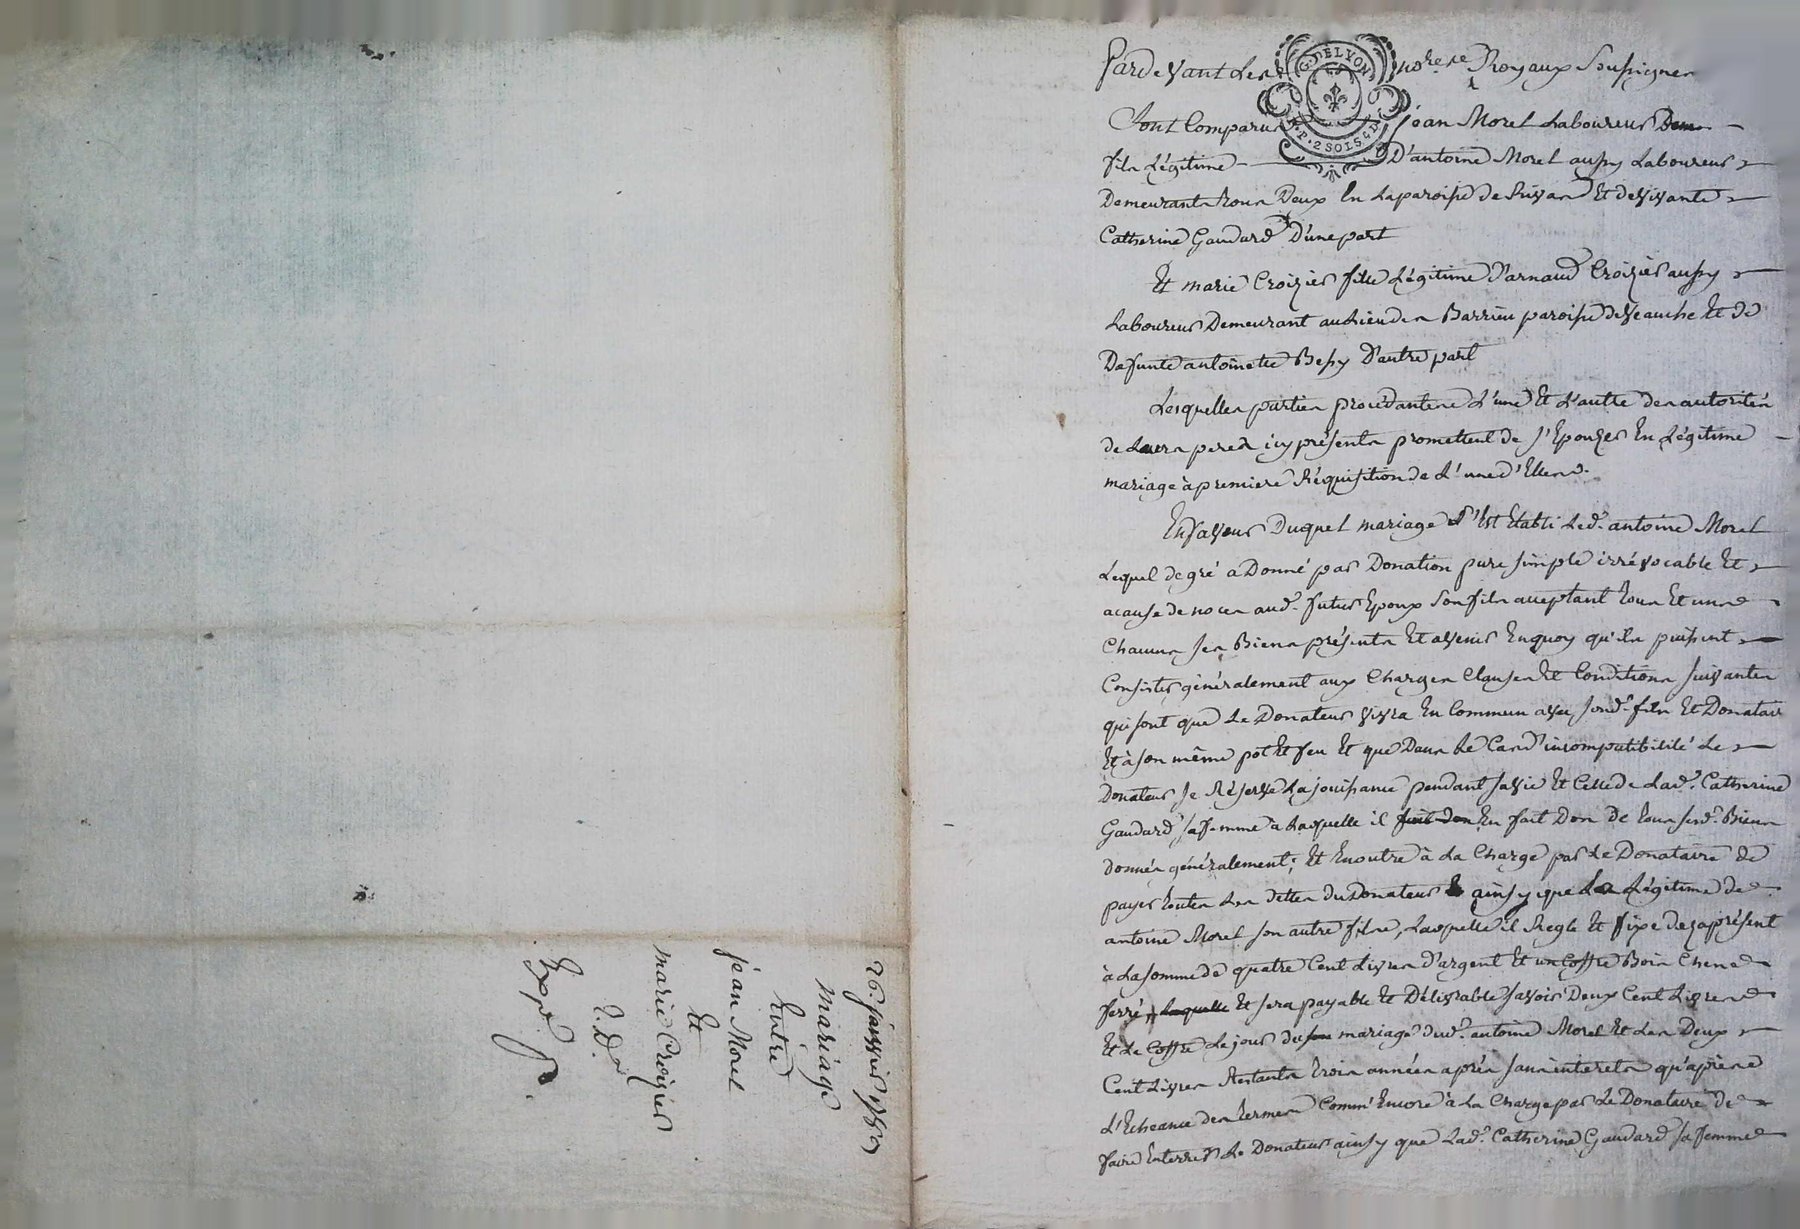 26 janvier 1785
mariage
Entre
jean Morel
Et
marie Croizier
Expé
G. DE LYON
2 SOLS
Pardevant Les no.res Royaux Soussignes
Sont Comparus jean Morel Laboureur
fils Légitime D'antoine Morel aussy Laboureur
Demeurants tous Deux En La paroisse de Rivas Et de vivante
Catherine Gaudard D'une part
Et marie Croizier fille Légitime D'arnaud Croizier aussy
Laboureur Demeurant au Lieu des Barrieu paroisse de Veauche Et de
Defunte antoinette Bessy D'autre part
Lesquelles parties procédantes L'une Et L'autre des autorités
de Leurs peres icy présents promettent de s'Epouser En Légitime
mariage à premiere Réquisition de L'une d'Elles.
En faveur Duquel mariage s'Est Etabli Led. antoine Morel
Lequel de gré a Donné par Donation pure simple irrévocable Et
a cause de noces aud. futur Epoux Son fils acceptant tous Et uns
Chacuns ses Biens présents Et avenir En quoy qu'ils puissent
Consister généralement aux Charges Clauses Et Conditions suivantes
qui sont que Le Donateur vivra En Commun avec sond. fils Et Donataire
Et à son même pot Et feu Et que Dans Le Cas d'incompatibilité Le
Donateur se Réserve La jouissance pendant sa vie Et Celle de Lad. Catherine
Gaudard sa femme a Laquelle il fait don En fait Don De tous sesd. Biens
donnés généralement; Et En outre à La Charge par Le Donataire De
payer toutes Les dettes du Donateur ainsy que La Légitime de
antoine Morel son autre fils, Laquelle il Regle Et fixe des a présent
à La somme de quatre Cent Livres D'argent Et un Coffre Bois Chene
ferré, Laquelle Et sera payable Et Délivrable savoir Deux Cent Livres
Et Le Coffre Le jour du son mariage dud. antoine Morel Et Les Deux
Cent Livres Restants trois années après sans interets qu'après
L'Echeance des termes Comm' Encore à La Charge par Le Donataire de
faire Enterrer Le Donateur ainsy que Lad. Catherine Gaudard sa femme